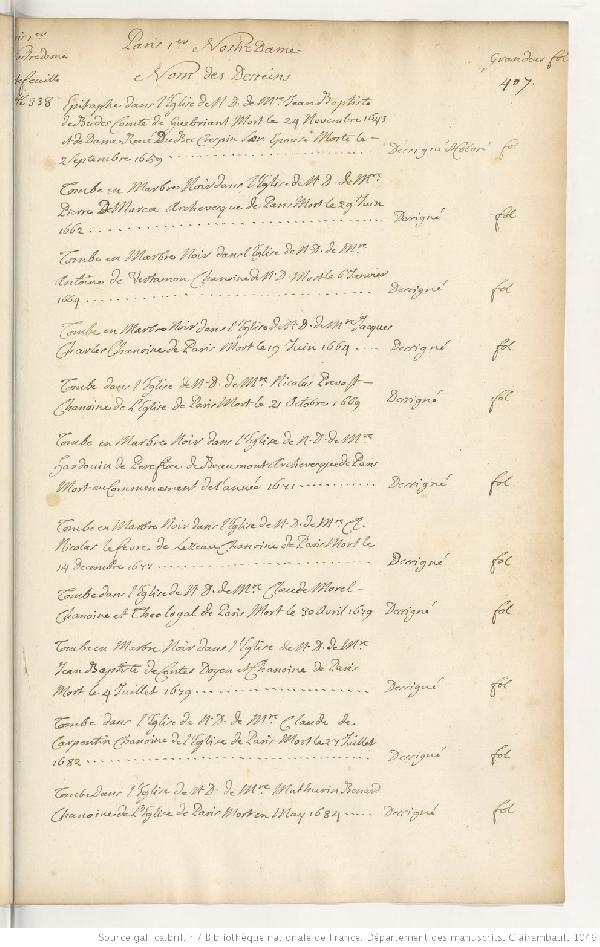 Paris 1er Nostredame
Nom des Desseins
Grandeur fol
407.
338
Epitaphe dans l'Eglise de N. D. de Mre Jean Baptiste
de Budes Comte de Guebriant Mort le 24 Novembre 1643
et de Dame René Du Bec Crespin Son Epouse Morte le
2 Septembre 1659 Dessigné Coloré fol
Tombe en Marbre Noir dans l'Eglise de N. D. de Mre
Pierre De Marca Archevesque de Paris Mort le 29 Juin
1662 Dessigné fol
Tombe en Marbre Noir dans l'Eglise de N. D. de Mre
Antoine de Vertamon Chanoine de N. D. Mort le 6 Janvier
1664 Dessigné fol
Tombe en Marbre Noir dans l'Eglise de N. D. de Mre Jacques
Charles Chanoine de Paris Mort le 19 Juin 1664 Dessigné fol
Tombe dans l'Eglise de N. D. de Mre Nicolas Prevost
Chanoine de l'Eglise de Paris Mort le 21 Octobre 1669 Dessigné fol
Tombe en Marbre Noir dans l'Eglise de N. D. de Mre
Hardouin de Perefixe de Beaumont Archevesque de Paris
Mort au Commencement de l'année 1671 Dessigné fol
Tombe en Marbre Noir dans l'Eglise de N. D. de Mre
Nicolas le fevre de Lezeau Chanoine de Paris Mort le
14 decembre 1677 Dessigné fol
Tombe dans l'Eglise de N. D. de Mre Claude Morel
Chanoine et Theologal de Paris Mort le 30 Avril 1679 Dessigné fol
Tombe en Marbre Noir dans l'Eglise de N. D. de Mre
Jean Baptiste de Contes Doyen et Chanoine de Paris
Mort le 4 Juillet 1679 Dessigné fol
Tombe dans l'Eglise de N. D. de Mre Claude de
Carpentin Chanoine de l'Eglise de Paris Mort le 27 Juillet
1682 Dessigné fol
Tombe dans l'Eglise de N. D. de Mre Mathurin Renard
Chanoine de l'Eglise de Paris Mort en May 1684 Dessigné fol
Source gallica.bnf.fr / Bibliothèque nationale de France. Département des manuscrits. Clairambault 1046